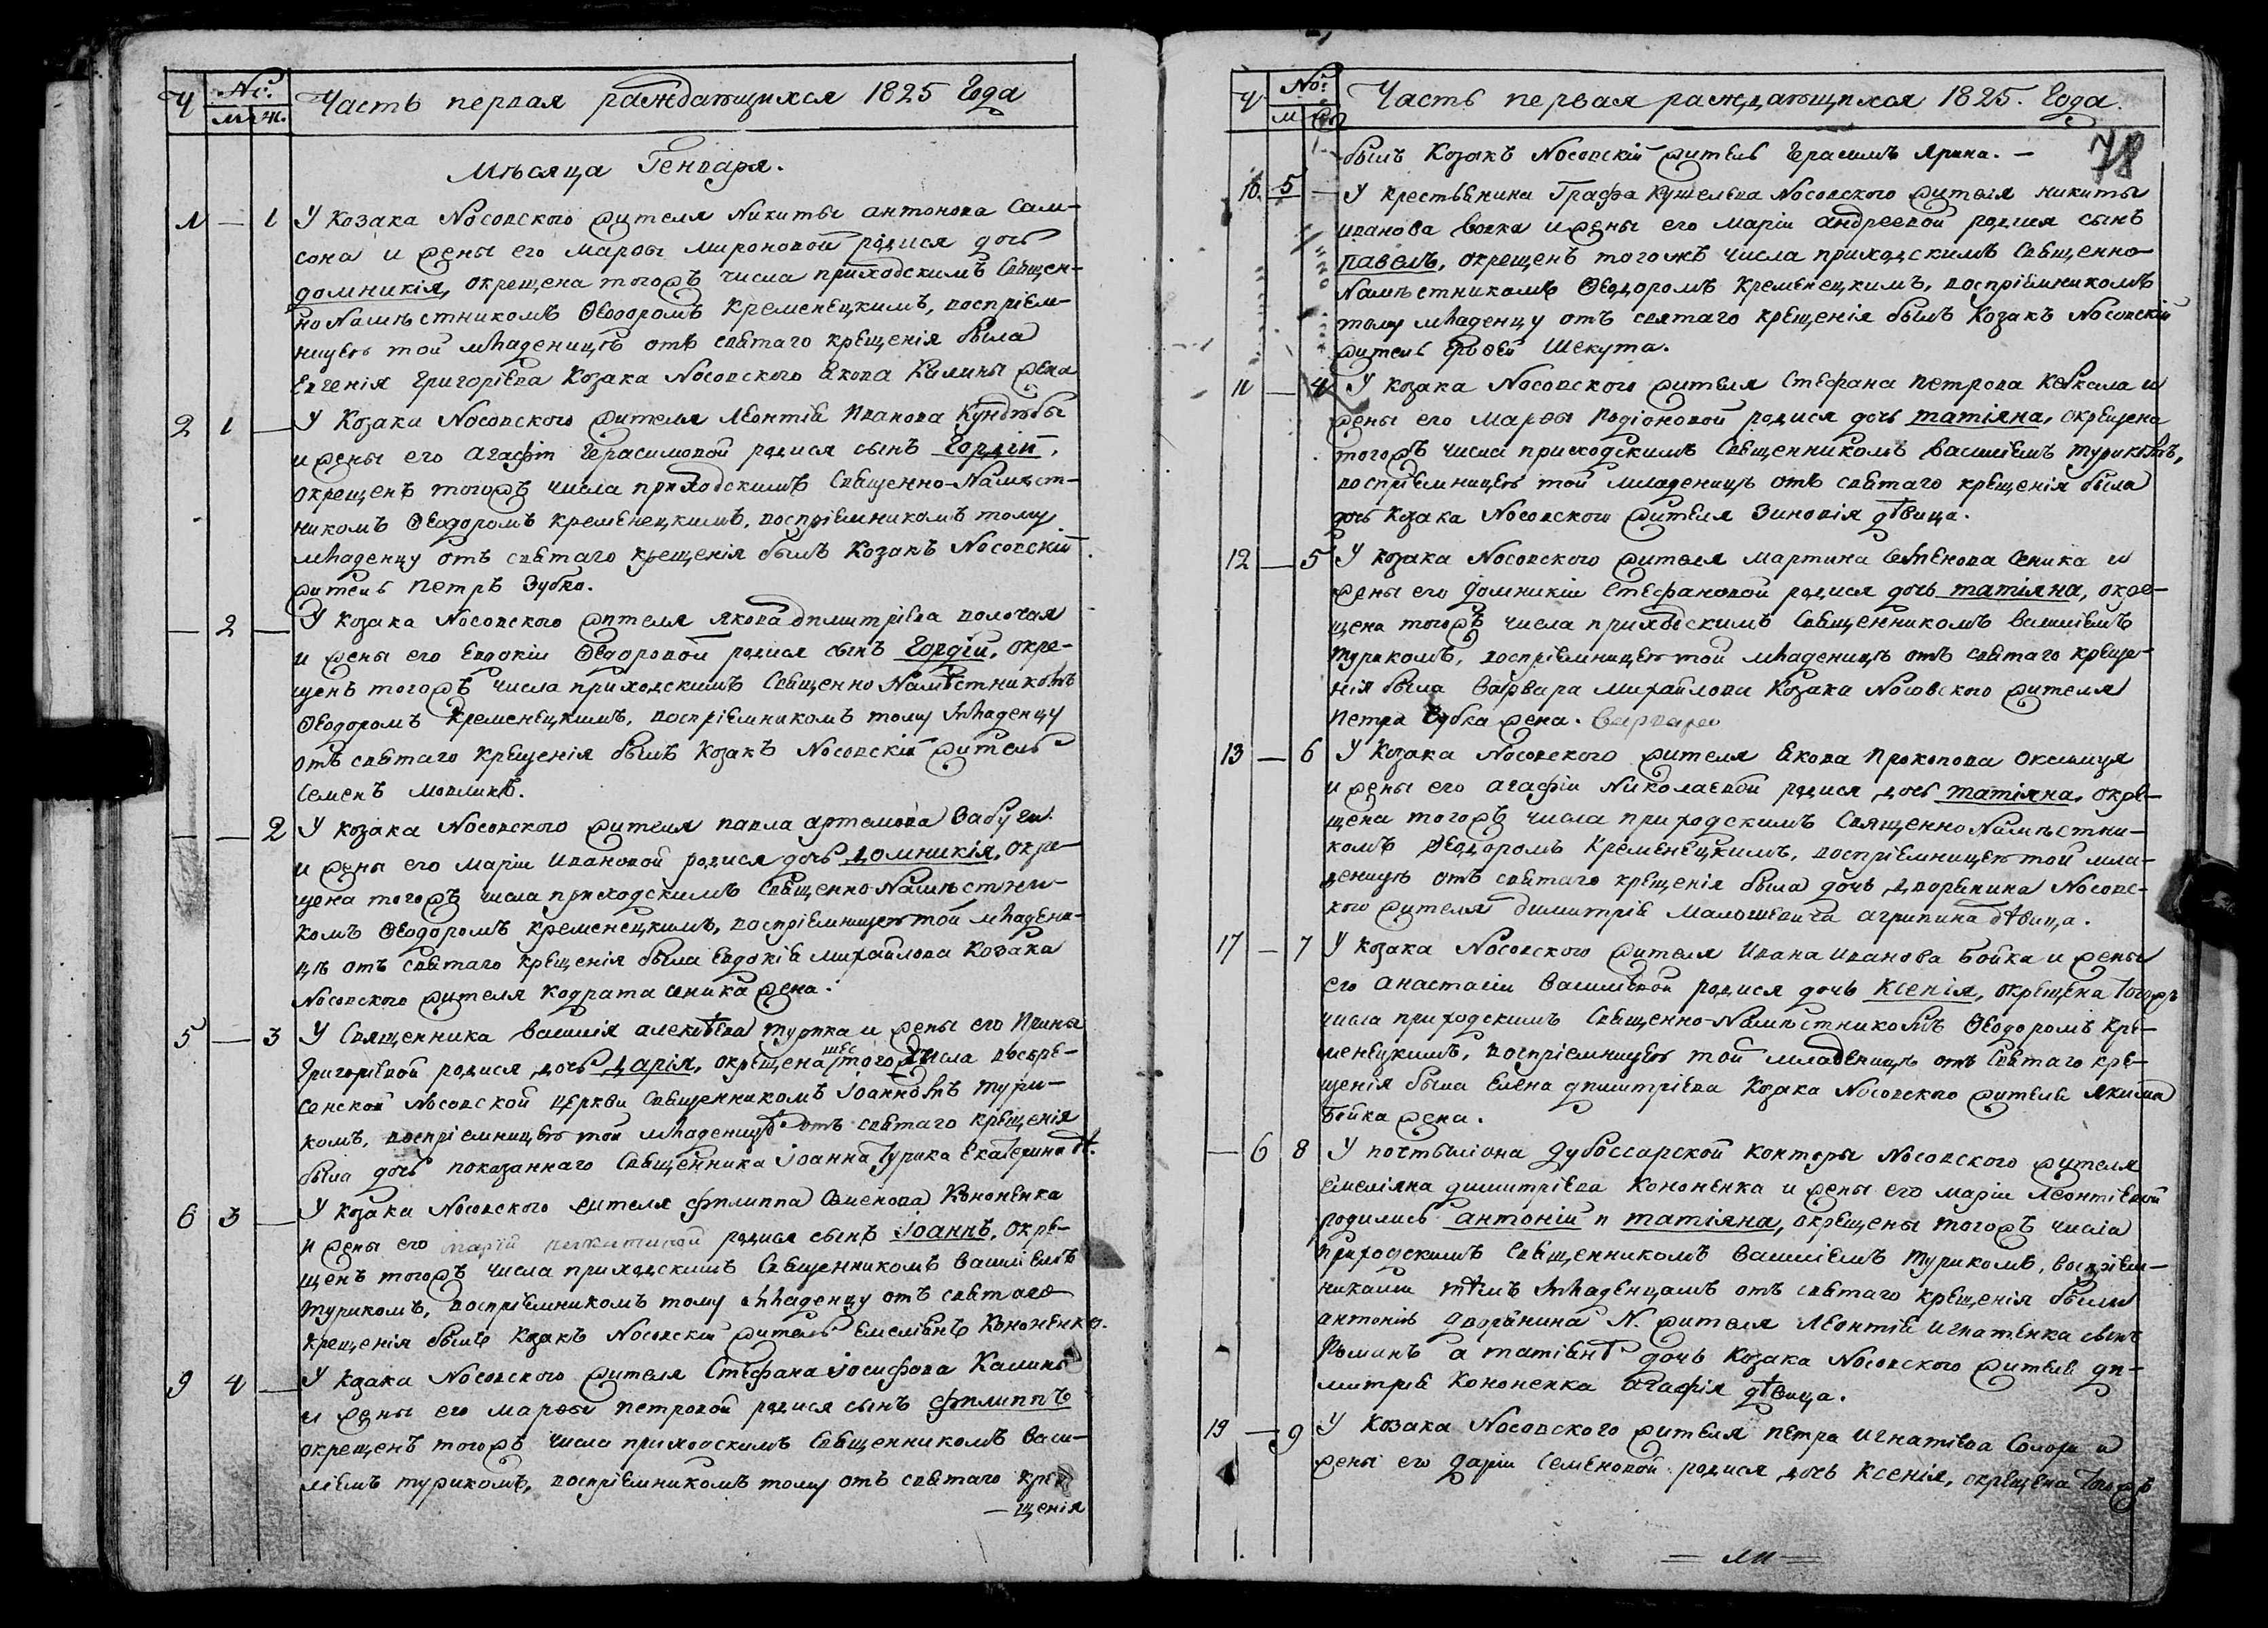 Ч
№.
м ж.
Часть первая раждающихся 1825 Года
Мѣсяца Генваря.
1 — 1 У Козака Носовского жителя Никиты Антонова Сам-
сона и жены его Марѳы Мироновой родися дочь
Домникія, окрещена тогожъ числа приходскимъ Священ-
но Намѣстникомъ Ѳеодоромъ Кременецкимъ, воспріем-
ницею той младеницѣ отъ святаго крещенія была
Евгенія Григоріева Козака Носовского Якова Калины жена
2 1 — У Козака Носовского жителя Леонтія Иванова Кундюбы
и жены его Агафіи Герасимовой родися сынъ Гордій,
окрещенъ тогожъ числа приходскимъ Священно-Намѣст-
никомъ Ѳеодоромъ Кременецкимъ, воспріемникомъ тому
младенцу отъ святаго крещенія былъ Козакъ Носовскій
житель Петръ Зубко.
— 2 — У Козака Носовского жителя Якова Димитріева Волочая
и жены его Евдокіи Ѳеодоровой родися сынъ Гордій, окре-
щенъ тогожъ числа приходскимъ Священно Намѣстникомъ
Ѳеодоромъ Кременецкимъ, воспріемникомъ тому младенцу
отъ святаго крещенія былъ Козакъ Носовскій житель
Семенъ
— — 2 У Козака Носовского жителя Павла Артемова
и жены его Маріи Ивановой родися дочь Домникія, окре-
щена тогожъ числа приходскимъ Священно Намѣстни-
комъ Ѳеодоромъ Кременецкимъ, воспріемницею той младени-
цѣ отъ святаго крещенія была Евдокія Михайлова Козака
Носовского жителя Кодрата Сеника жена.
5 — 3 У Священника Василія Алексѣева Турика и жены его Ирины
Григоріевой родися дочь Дарія, окрещена шес того числа Воскре-
сенской Носовской церкви Священникомъ Іоанномъ Тури-
комъ, воспріемницею той младеницѣ отъ святаго крещенія
была дочь показаннаго Священника Іоанна Турика Екатерина дѣ.
6 3 — У Козака Носовского жителя Филиппа Семенова Кононенка
и жены его Маріи Никитиной родися сынъ Іоаннъ, окре-
щенъ тогожъ числа приходскимъ Священникомъ Василіемъ
Турикомъ, воспріемникомъ тому младенцу отъ святаго
крещенія былъ Козакъ Носовскій житель Емеліянъ Кононенко.
9 4 — У Козака Носовского жителя Стефана Іосифова Калины
и жены его Марѳы Петровой родися сынъ Филиппъ
окрещенъ тогожъ числа приходскимъ Священникомъ Васи-
ліемъ Турикомъ, воспріемникомъ тому отъ святаго кре-
— щенія
Ч
№.
м ж
Часть первая раждающихся 1825. Года.
78
былъ Козакъ Носовскій житель Герасимъ Ярина. —
10. 5 — У крестьянина Графа Кушелева Носовского жителя Никиты
Иванова Вовка и жены его Маріи Андреевой родися сынъ
Павелъ, окрещенъ тогожъ числа приходскимъ Священно
Намѣстникомъ Ѳеодоромъ Кременецкимъ, воспріемникомъ
тому младенцу отъ святаго крещенія былъ Козакъ Носовскій
житель Шекута.
11 — 4 У Козака Носовского жителя Стефана Петрова и
жены его Марѳы Родіоновой родися дочь Татіяна, окрещена
тогожъ числа приходскимъ Священникомъ Василіемъ Турикомъ,
воспріемницею той младеницѣ отъ святаго крещенія была
дочь Козака Носовского жителя Зиновія дѣвица.
12 — 5 У Козака Носовского жителя Мартина Семенова Сеника и
жены его Домникіи Стефановой родися дочь Татіяна, окре-
щена тогожъ числа приходскимъ Священникомъ Василіемъ
Турикомъ, воспріемницею той младеницѣ отъ святаго креще-
нія была Варвара Михайлова Козака Носовского жителя
Петра Зубка жена. Варвара
13 — 6 У Козака Носовского жителя Якова Прокопова
и жены его Агафіи Николаевой родися дочь Татіяна, окре-
щена тогожъ числа приходскимъ Священно Намѣстни-
комъ Ѳеодоромъ Кременецкимъ, воспріемницею той мла-
деницѣ отъ святаго крещенія была дочь Дворянина Носовс-
кого жителя Димитрія Малюшевича Агрипина дѣвица.
17 — 7 У Козака Носовского жителя Ивана Иванова Бойка и жены
его Анастасіи Василіевой родися дочь Ксенія, окрещена тогожъ
числа приходскимъ Священно-Намѣстникомъ Ѳеодоромъ Кре-
менецкимъ, воспріемницею той младеницѣ отъ святаго кре-
щенія была Елена Димитріева Козака Носовского жителя Якима
Бойка жена.
— 6 8 У почтыліона Дубоссарской конторы Носовского жителя
Емеліяна Димитріева Кононенка и жены его Маріи Леонтіевой
родились Антоній и Татіяна, окрещены тогожъ числа
приходскимъ Священникомъ Василіемъ Турикомъ, воспріем-
никами тѣмъ младенцамъ отъ святаго крещенія были
Антонію дворянина N. жителя Леонтія Игнатенка сынъ
Романъ а Татіянѣ дочь Козака Носовского жителя Ди-
митрія Кононенка Агафія дѣвица.
19 — 9 У Козака Носовского жителя Петра Игнатіева и
жены его Даріи Семеновой родися дочь Ксенія, окрещена тогожъ